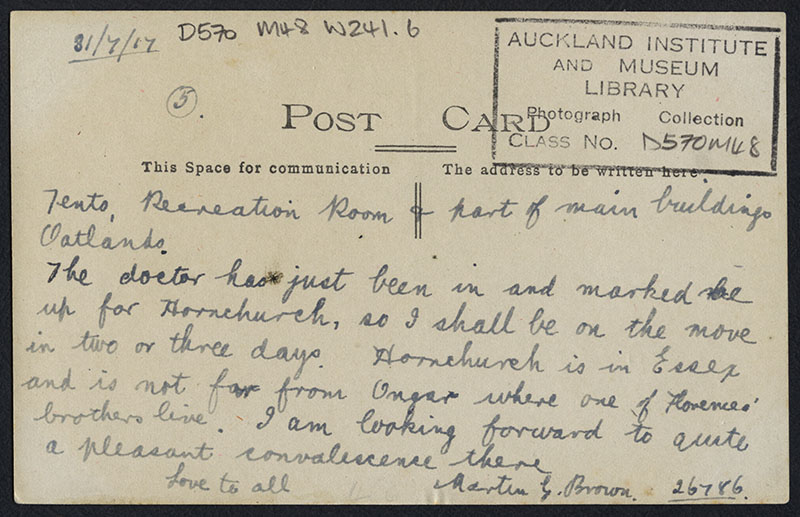 31/7/17 D570 M48 W241.6
AUCKLAND INSTITUTE
AND MUSEUM
LIBRARY
Photograph Collection
CLASS No. D570M48
5.
POST CARD
This Space for communication
The address to be written here.
Tents, Recreation Room & part of main buildings
Oatlands.
The doctor has just been in and marked me
up for Hornchurch, so I shall be on the move
in two or three days. Hornchurch is in Essex
and is not far from Ongar where one of Florences'
brothers live. I am looking forward to quite
a pleasant convalescence there
Love to all Martin G. Brown. 26786.